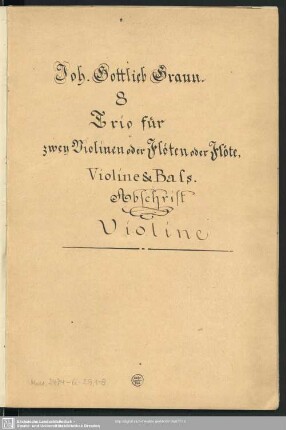 Joh. Gottlieb Graun.
8
Trio für
zwey Violinen oder Flöten oder Flöte,
Violine & Bass.
Abschrift
Violine